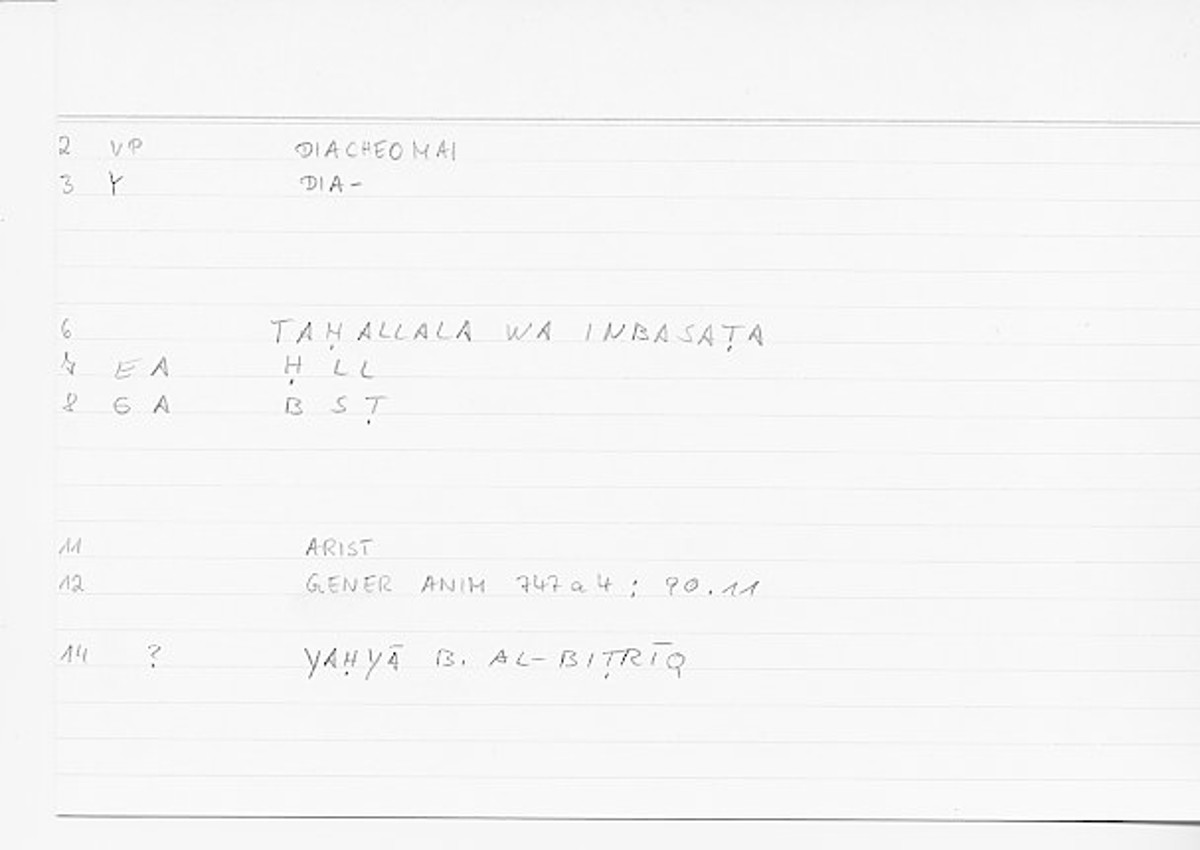 2 VP DIACHEOMAI
3 Y DIA-
6 TAḤALLALA WA INBASAṬA
7 EA Ḥ L L
8 GA B S Ṭ
11 ARIST
12 GENER ANIM 747a4; 90.11
14 ? YAḤYĀ B. AL-BIṬRĪQ